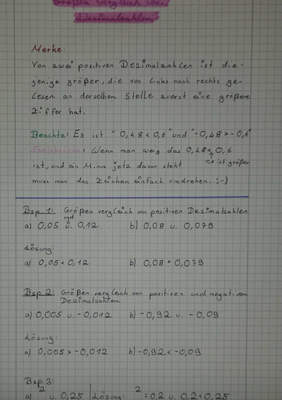 Größen vergleich von
Dezimalzahlen
Merke:
Von zwei positiven Dezimalzahlen ist die-
jenige größer, die von links nach rechts ge-
lesen an derselben Stelle zuerst eine größere
Ziffer hat.
Beachte: Es ist "0,48 < 0,6" und "-0,48 > -0,6"
Wenn man weiß das 0,48 < 0,6
ist, und ein Minus jetzt davor steht
ist größer
muss man das Zeichen einfach umdrehen. :-)
Bsp. 1: Größen vergleich von positiven Dezimalzahlen
a) 0,05 u. 0,12 b) 0,08 u. 0,079
Lösung:
a) 0,05 < 0,12 b) 0,08 > 0,079
Bsp. 2: Größen vergleich von positiven und negativen
Dezimalzahlen.
a) 0,005 u. -0,012 b) -0,92 u. -0,09
Lösung
a) 0,005 > -0,012 b) -0,92 < -0,09
Bsp 3:
u. 0,25 Lösung = 0,2 u. 0,2 < 0,25